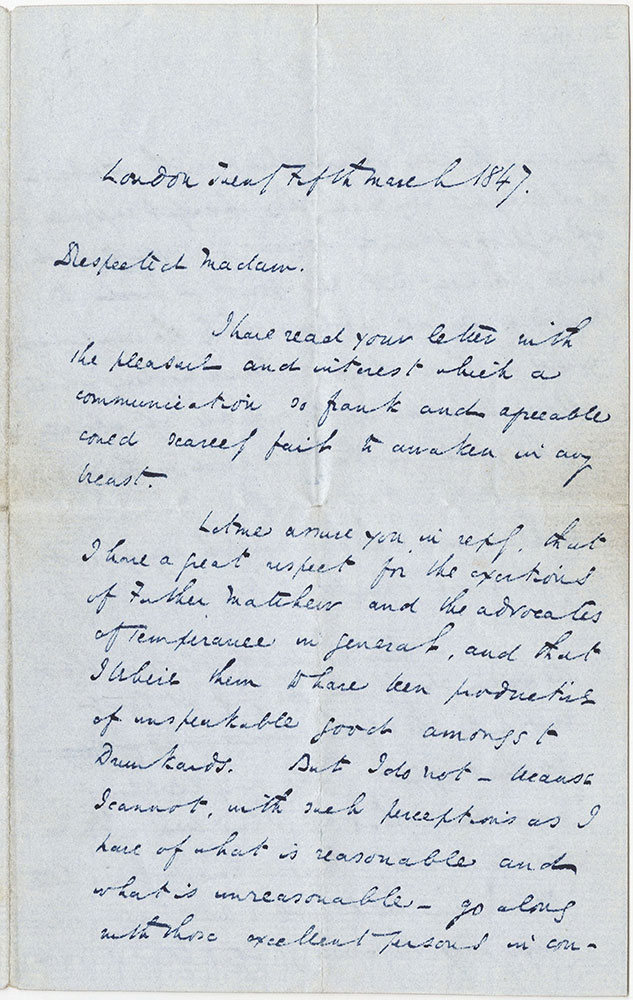 London Twenty Fifth March 1847.
Respected Madam.
I have read your letter with
the pleasure and interest which a
communication so frank and agreeable
could scarcely fail to awaken in any
breast.
Let me assure you in reply, that
I have a great respect for the exertions
of Father Matthew and the advocates
of Temperance in general, and that
I believe them to have been productive
of unspeakable good amongst
Drunkards. But I do not - because
I cannot, with such perceptions as I
have of what is reasonable and
what is unreasonable - go along
with those excellent persons in con-